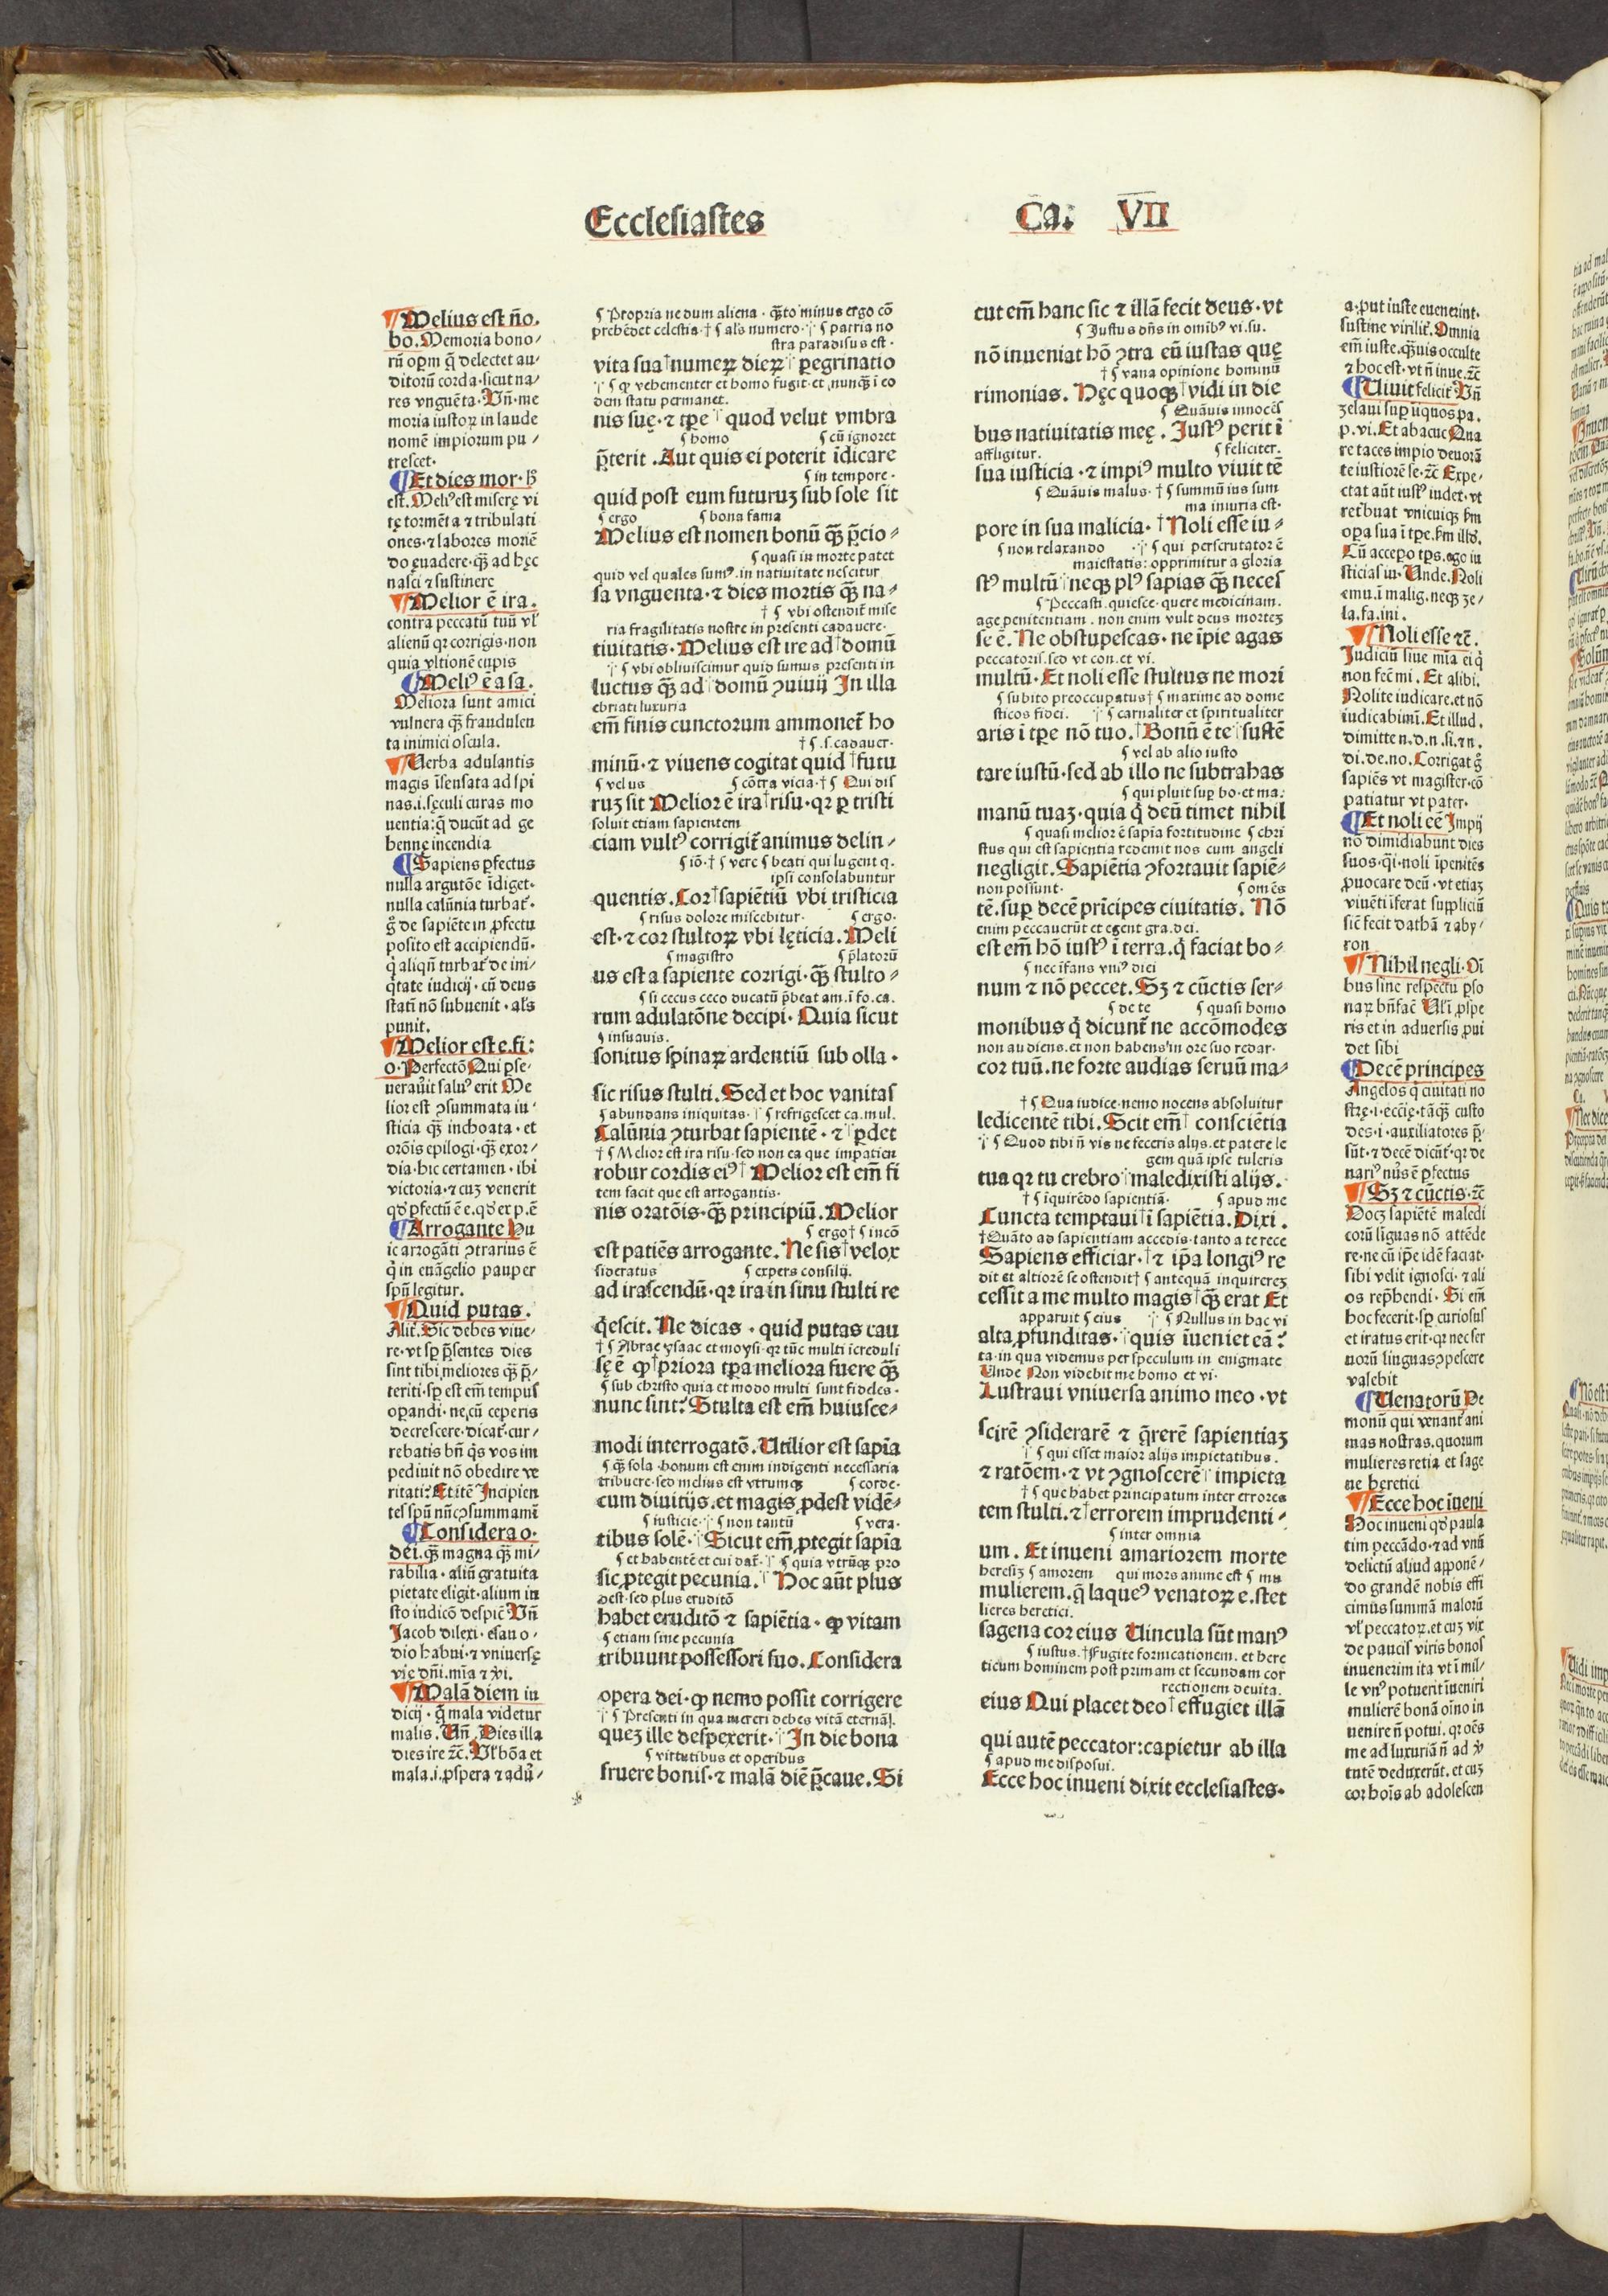 Ecclesiastes
Ca: VII
Melius est no̅.
bo. Memoria bono/
rū op̄m q̄ delectet au-
ditorū corda. sicut na/
res vnguēta. Vn̄. me
moria iustoꝝ in laude
nomē impiorum pu /
trescet.
Et dies mor. h̊
est. Meliꝰ est miserę vi
tę tormēta ⁊ tribulati
ones. ⁊ labores moriē
do ęuadere. qꝫ̄ ad hęc
nasci ⁊ sustinere
Melior ē ira.
contra peccatū tuū vł
alienū qꝛ corrigis. non
quia vltionē cupis
Meliꝰ ē a sa.
Meliora sunt amici
vulnera qꝫ̄ fraudulen
ta inimici oscula.
Verba adulantis
magis īsensata ad spi
nas. i. sęculi curas mo
uentia: q̄ ducūt ad ge
hennę incendia
Sapiens ꝑfectus
nulla argutōe īdiget.
nulla calūnia turbat̄.
g̊ de sapiēte in ꝓfectu
posito est accipiendū.
q̇ aliqn̄ turbat̄ de ini/
q̇tate iudicij. cū deus
stati̅ nō subuenit. al's
punit.
Melior est e. fi:
o. Perfectō Qui ꝑse/
uerauīt saluꝰ erit Me
lior est ꝯsummata iu
sticia qꝫ̄ inchoata. et
orōis epilogi. qꝫ̄ exor/
dia. hic certamen. ibi
victoria. ⁊ cuꝫ venerit
qd̛ ꝑfectū ē e. qd̛ ex p. ē
Arrogante Hu
ic arrogāti ꝯtrarius ē
q̇ in euāgelio pauper
spū legitur.
Quid putas.
Alit̄. Sic debes viue/
re. vt sꝑ p̄sentes dies
sint tibi meliores qꝫ̄ p̄/
teriti. sꝑ est em̄ tempus
oꝑandi. ne cū ceperis
decrescere. dicat̄. cur/
rebatis bn̄ q̇s vos im
pediuit nō obedire ve
ritati? Et itē Incipien
tes spū nūc ꝯsummami̅
Considera o.
dei. qꝫ̄ magna qꝫ̄ mi/
rabilia. aliū gratuita
pietate eligit. alium in
sto iudicō despic̄ Vn̄
Jacob dilexi. esau o/
dio habui. ⁊ vniuersę
vię dn̄i. mīa ⁊ v̇i.
Malā diem iu
dicij. q̄ mala videtur
malis. Vn̄. Dies illa
dies ire ⁊c̄. Vł bōa et
mala. i. ꝓspera ⁊ adū̇/
¶ Propria ne dum aliena. qꝫ̄to minus ergo cō
prehēdet celestia. † ¶ al's numero. ¶ patria no
stra paradisus est.
vita sua numeꝝ dieꝝ ꝑegrinatio
¶ ꝙ vehementer et homo fugit. et nunqꝫ̄ i̅ eo
dem statu permanet.
nis suę. ⁊ tꝑe quod velut vmbra
¶ homo ¶ cū ignoret
p̄terit. Aut quis ei poterit īdicare
¶ in tempore.
quid post eum futuruꝫ sub sole sit
¶ ergo ¶ bona fama
Melius est nomen bonū qꝫ̄ p̄cio/
¶ quasi in morte patet
quid vel quales sumꝰ. in natiuitate nescitur
sa vnguenta. ⁊ dies mortis qꝫ̄ na-
† ¶ vbi ostendit̄ mise
ria fragilitatis nostre in presenti cadauere.
tiuitatis. Melius est ire ad domū
¶ vbi obliuiscimur quid sumus presenti in
luctus qꝫ̄ ad domū ꝯuiuij In illa
ebriati luxuria
em̄ finis cunctorum ammonet̄ ho
† ¶ .s. cadauer.
minū. ⁊ viuens cogitat quid futu
¶ vel us ¶ cōtra vicia. † ¶ Qui dis
ruꝫ sit Melior ē ira risu. qꝛ ꝑ tristi
soluit etiam sapientem
ciam vultꝰ corrigit̄ animus delin/
¶ iō. † ¶ vere ¶ beati qui lugent q.
ipsi consolabuntur
quentis. Cor sapiētiū vbi tristicia
¶ risus dolore miscebitur. ¶ ergo.
est. ⁊ cor stultoꝝ vbi lęticia. Meli
¶ magistro ¶ p̄latorū
us est a sapiente corrigi. qꝫ̄ stulto/
¶ si cecus ceco ducatū p̄beat am. i̅ fo. ca.
rum adulatōne decipi. Quia sicut
¶ insuauis.
sonitus spinaꝝ ardentiū sub olla.
sic risus stulti. Sed et hoc vanitas
¶ abundans iniquitas. ¶ refrigescet ca. mul.
Calūnia ꝯturbat sapientē. ⁊ ꝑdet
† ¶ Melior est ira risu. sed non ea que impatien
robur cordis eiꝰ Melior est em̄ fi
tem facit que est arrogantis.
nis oratōis. qꝫ̄ principiū. Melior
¶ ergo † ¶ incō
est patiēs arrogante. Ne sis velox
sideratus ¶ expers consilij.
ad irascendū. qꝛ ira in sinu stulti re
q̇escit. Ne dicas. quid putas cau
† ¶ Abrae ysaac et moysi. qꝛ tūc multi īcreduli
sę ē ꝙ priora tꝑa meliora fuere qꝫ̄
¶ sub christo quia et modo multi sunt fideles.
nunc sint? Stulta est em̄ huiusce/
modi interrogatō. Utilior est sapīa
¶ qꝫ̄ sola. bonum est enim indigenti necessaria
tribuere. sed melius est vtrumqꝫ ¶ corde.
cum diuitijs. et magis ꝓdest vidē-
¶ iusticie. ¶ non tantū ¶ vera.
tibus solē. Sicut em̄ ꝓtegit sapīa
¶ et habentē et cui dat̄. ¶ quia vtrūqꝫ pro
sic ꝓtegit pecunia. Hoc aūt plus
dest. sed plus eruditō
habet eruditō ⁊ sapiētia. ꝙ vitam
¶ etiam sine pecunia
tribuunt possessori suo. Considera
opera dei. ꝙ nemo possit corrigere
¶ Presenti in qua mereri debes vitā eternā.
queꝫ ille despexerit. In die bona
¶ virtutibus et operibus
fruere bonis. ⁊ malā diē p̄caue. Si
cut em̄ hanc sic ⁊ illā fecit deus. vt
¶ Justus dn̄s in omibꝰ vi. su.
nō inueniat hō ꝯtra eū iustas quę
† ¶ vana opinione hominū
rimonias. Hęc quoqꝫ vidi in die
¶ Quāuis innocēs
bus natiuitatis meę. Justꝰ perit i̅
affligitur. ¶ feliciter.
sua iusticia. ⁊ impiꝰ multo viuit tē
¶ Quāuis malus. † ¶ summū ius sum
ma iniuria est.
pore in sua malicia. Noli esse iu/
¶ non relaxando ¶ qui perscrutator ē
maiestatis: opprimitur a gloria
stꝰ multū neqꝫ plꝰ sapias qꝫ̄ neces
¶ Peccasti. quiesce. quere medicinam.
age penitentiam. non enim vult deus morteꝫ
se ē. Ne obstupescas. ne īpie agas
peccatoris. sed vt con. et vi.
multū. Et noli esse stultus ne mori
¶ subito preoccupatus † ¶ maxime ad dome
sticos fidei. ¶ carnaliter et spiritualiter
aris i̅ tꝑe nō tuo. Bonū ē te suste
¶ vel ab alio iusto
tare iustū. sed ab illo ne subtrahas
¶ qui pluit suꝑ bo. et ma.
manū tuaꝫ. quia q̇ deū timet nihil
¶ quasi melior ē sapīa fortitudine ¶ chri
stus qui est sapientia redemit nos cum angeli
negligit. Sapiētia ꝯfortauit sapiē-
non possunt. ¶ omēs
tē. suꝑ decē prīcipes ciuitatis. Nō
enim peccauerūt et egent gra. dei.
est em̄ hō iustꝰ i̅ terra. q̇ faciat bo-
¶ nec īfans vniꝰ diei
num ⁊ nō peccet. Sꝫ ⁊ cūctis ser-
¶ de te ¶ quasi homo
monibus q̇ dicunt̄ ne accōmodes
non audiens. et non habens in ore suo redar.
cor tuū. ne forte audias seruū ma-
† ¶ Qua iudice. nemo nocens absoluitur
ledicentē tibi. Scit em̄ consciētia
¶ Quod tibi n̄ vis ne feceris alijs. et patere le
gem quā ipse tuleris
tua qꝛ tu crebro maledixisti alijs.
† ¶ īquirēdo sapientiā. ¶ apud me
Cuncta temptaui i̅ sapiētia. Dixi.
† Quāto ad sapientiam accedis. tanto a te rece
Sapiens efficiar. ⁊ ip̄a longiꝰ re
dit et altiorē se ostendit † ¶ antequā inquirereꝫ
cessit a me multo magis qꝫ̄ erat Et
apparuit ¶ eius ¶ Nullus in hac vi
alta ꝓfunditas. quis īueniet eā?
ta. in qua videmus per speculum in enigmate
Unde Non videbit me homo et vi.
Lustraui vniuersa animo meo. vt
scirē ꝯsiderarē ⁊ q̄rerē sapientiaꝫ
¶ qui esset maior alijs impietatibus.
⁊ ratōem. ⁊ vt ꝯgnoscerē impieta
† ¶ que habet principatum inter errores
tem stulti. ⁊ errorem imprudenti/
¶ inter omnia
um. Et inueni amariorem morte
heresiꝫ ¶ amorem qui mors anime est ¶ mu
mulierem. q̄ laqueꝰ venatoꝝ e. ⁊ et
lieres heretici.
sagena cor eius Uincula sūt manꝰ
¶ iustus. † Fugite fornicationem. et here
ticum hominem post primam et secundam cor
rectionem deuita.
eius Qui placet deo effugiet illā
qui autē peccator: capietur ab illa
¶ apud me disposui.
Ecce hoc inueni dixit ecclesiastes.
a. put iuste euenerint.
sustine virilit̄. Omnia
em̄ iuste. qꝫ̄uis occulte
⁊ hoc est. vt n̄ inue. ⁊c̄
Uiuit felicit̄ Vn̄
zelaui suꝑ iiquos pa.
p. vi. Et abacuc Qua
re taces impio deuorā
te iustiorē se. ⁊c̄ Expe/
ctat aūt iustꝰ iudex. vt
ret̄buat vnicuiqꝫ ẜm
oꝑa sua i̅ tꝑe. ẜm illd̛.
Cū accepo tꝑs. ego iu
sticias iu. Unde. Noli
emu. i̅ malig. neqꝫ ze/
la. fa. ini.
Noli esse ⁊c̄.
Judiciū sine mīa ei q̇
non fec̄ mi. Et alibi.
Nolite iudicare. et nō
iudicabimi̅. Et illud.
dimitte n. d. n. si. ⁊ n.
di. de. no. Corrigat g̊
sapiēs vt magister. cō
patiatur vt pater.
Et noli eē Impij
nō dimidiabunt dies
suos. q̇i. noli īpenitēs
ꝓuocare deū. vt etiaꝫ
viuēti īferat suppliciū
sic̄ fecit dathā ⁊ aby/
ron
Nihil negli. Oī
bus sine respectu ꝑso
naꝝ bn̄fac̄ Vł i̅ ꝓspe
ris et in aduersis ꝓui
det sibi
Decē principes
Angelos q̇ ciuitati no
strę. i. ecc̄ię. tāqꝫ̄ custo
des. i. auxiliatores p̄/
sūt. ⁊ decē dicūt̄. qꝛ de
nariꝰ nūs ē ꝑfectus
Sꝫ ⁊ cūctis. ⁊c̄
Docꝫ sapiētē maledi
corū līguas nō attēde
re. ne cū ip̄e idē faciat.
sibi velit ignosci. ⁊ ali
os rep̄hendi. Si em̄
hoc fecerit. sꝑ curiosus
et iratus erit. qꝛ nec ser
uorū linguas ꝯpescere
valebit
Uenatorū De
monū qui venant̄ ani
mas nostras. quorum
mulieres retia et sage
ne heretici
Ecce hoc īueni
Hoc inueni qd̛ paula
tim peccādo. ⁊ ad vnū
delictū aliud apponē/
do grandē nobis effi
cimus summā malorū
vł peccatoꝝ. et cuꝫ vix
de paucis viris bonos
inuenerim ita vt i̅ mil/
le vnꝰ potuerit īueniri
mulierē bonā oīno in
uenire n̄ potui. qꝛ oēs
me ad luxuriā n̄ ad v̇
tutē deduxerūt. et cuꝫ
cor hoīs ab adolescen